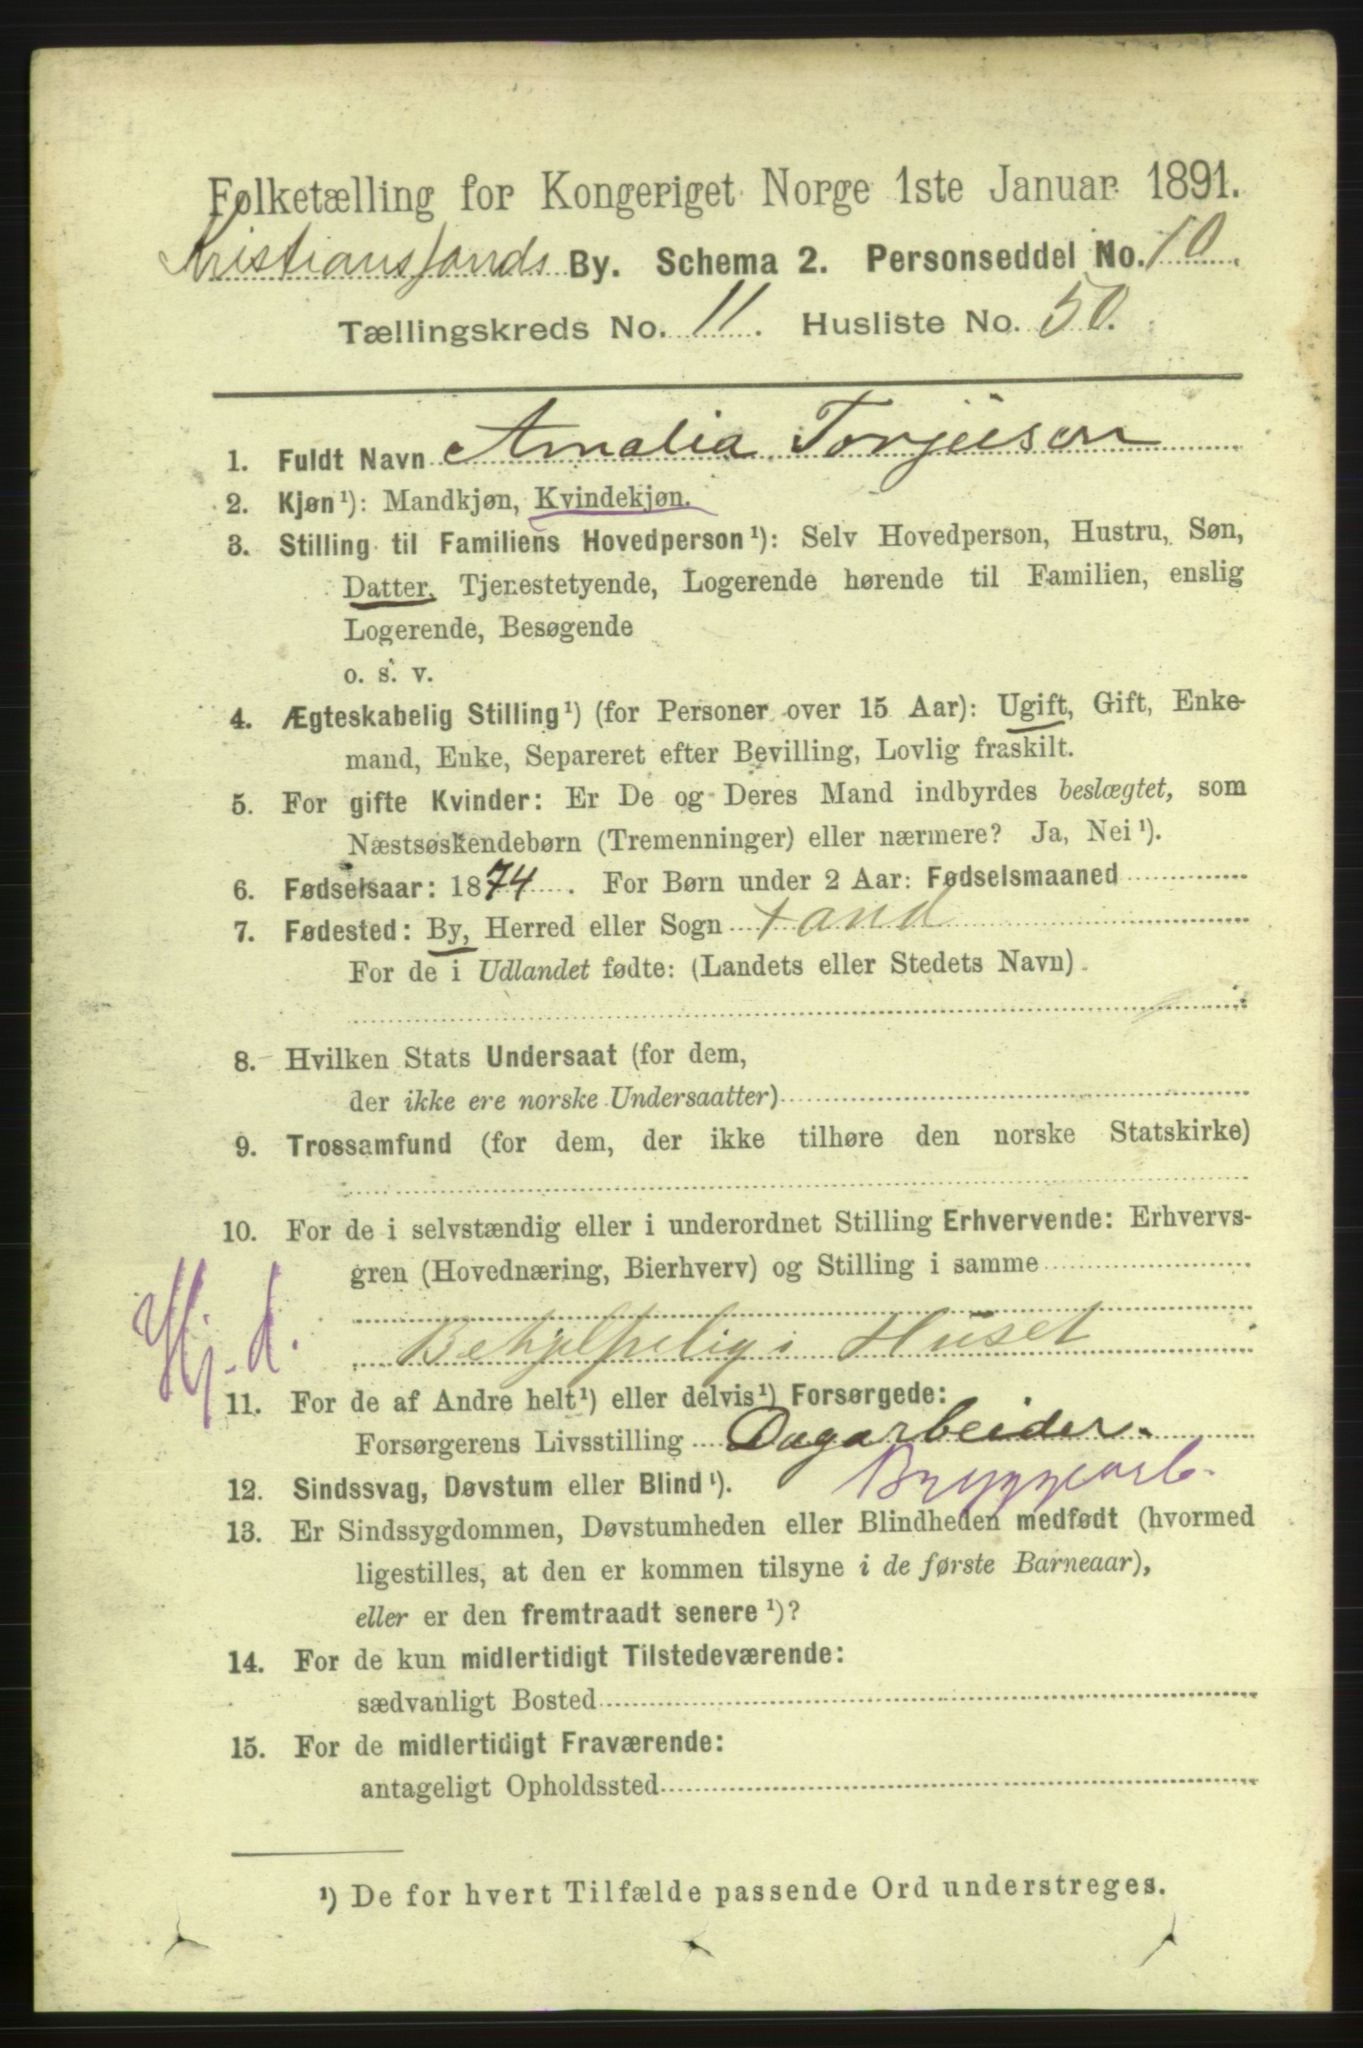 Folketælling for Kongeriget Norge 1ste Januar 1891.
Kristianssands By. Schema 2. Personseddel No. 10.
Tællingskreds No. 11. Husliste No. 50.
1. Fuldt Navn Amalia Torjeisen
2. Kjøn¹): Mandkjøn, Kvindekjøn.
3. Stilling til Familiens Hovedperson¹): Selv Hovedperson, Hustru, Søn,
Datter, Tjenestetyende, Logerende hørende til Familien, enslig
Logerende, Besøgende
o. s. v.
4. Ægteskabelig Stilling¹) (for Personer over 15 Aar): Ugift, Gift, Enke-
mand, Enke, Separeret efter Bevilling, Lovlig fraskilt.
5. For gifte Kvinder: Er De og Deres Mand indbyrdes beslægtet, som
Næstsøskendebørn (Tremenninger) eller nærmere? Ja, Nei¹).
6. Fødselsaar: 1874. For Børn under 2 Aar: Fødselsmaaned
7. Fødested: By, Herred eller Sogn X and
For de i Udlandet fødte: (Landets eller Stedets Navn)
8. Hvilken Stats Undersaat (for dem,
der ikke ere norske Undersaatter)
9. Trossamfund (for dem, der ikke tilhøre den norske Statskirke)
10. For de i selvstændig eller i underordnet Stilling Erhvervende: Erhvervs-
gren (Hovednæring, Bierhverv) og Stilling i samme
Hj. d. Behjelpelig i Huset
11. For de af Andre helt¹) eller delvis¹) Forsørgede:
Forsørgerens Livsstilling Dagarbeider.
12. Sindssvag, Døvstum eller Blind¹). Bryggearb.
13. Er Sindssygdommen, Døvstumheden eller Blindheden medfødt (hvormed
ligestilles, at den er kommen tilsyne i de første Barneaar),
eller er den fremtraadt senere¹)?
14. For de kun midlertidigt Tilstedeværende:
sædvanligt Bosted
15. For de midlertidigt Fraværende:
antageligt Opholdssted
¹) De for hvert Tilfælde passende Ord understreges.